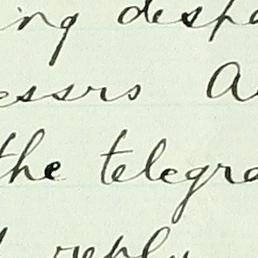 ing desp
essrs A
the telegra
reply